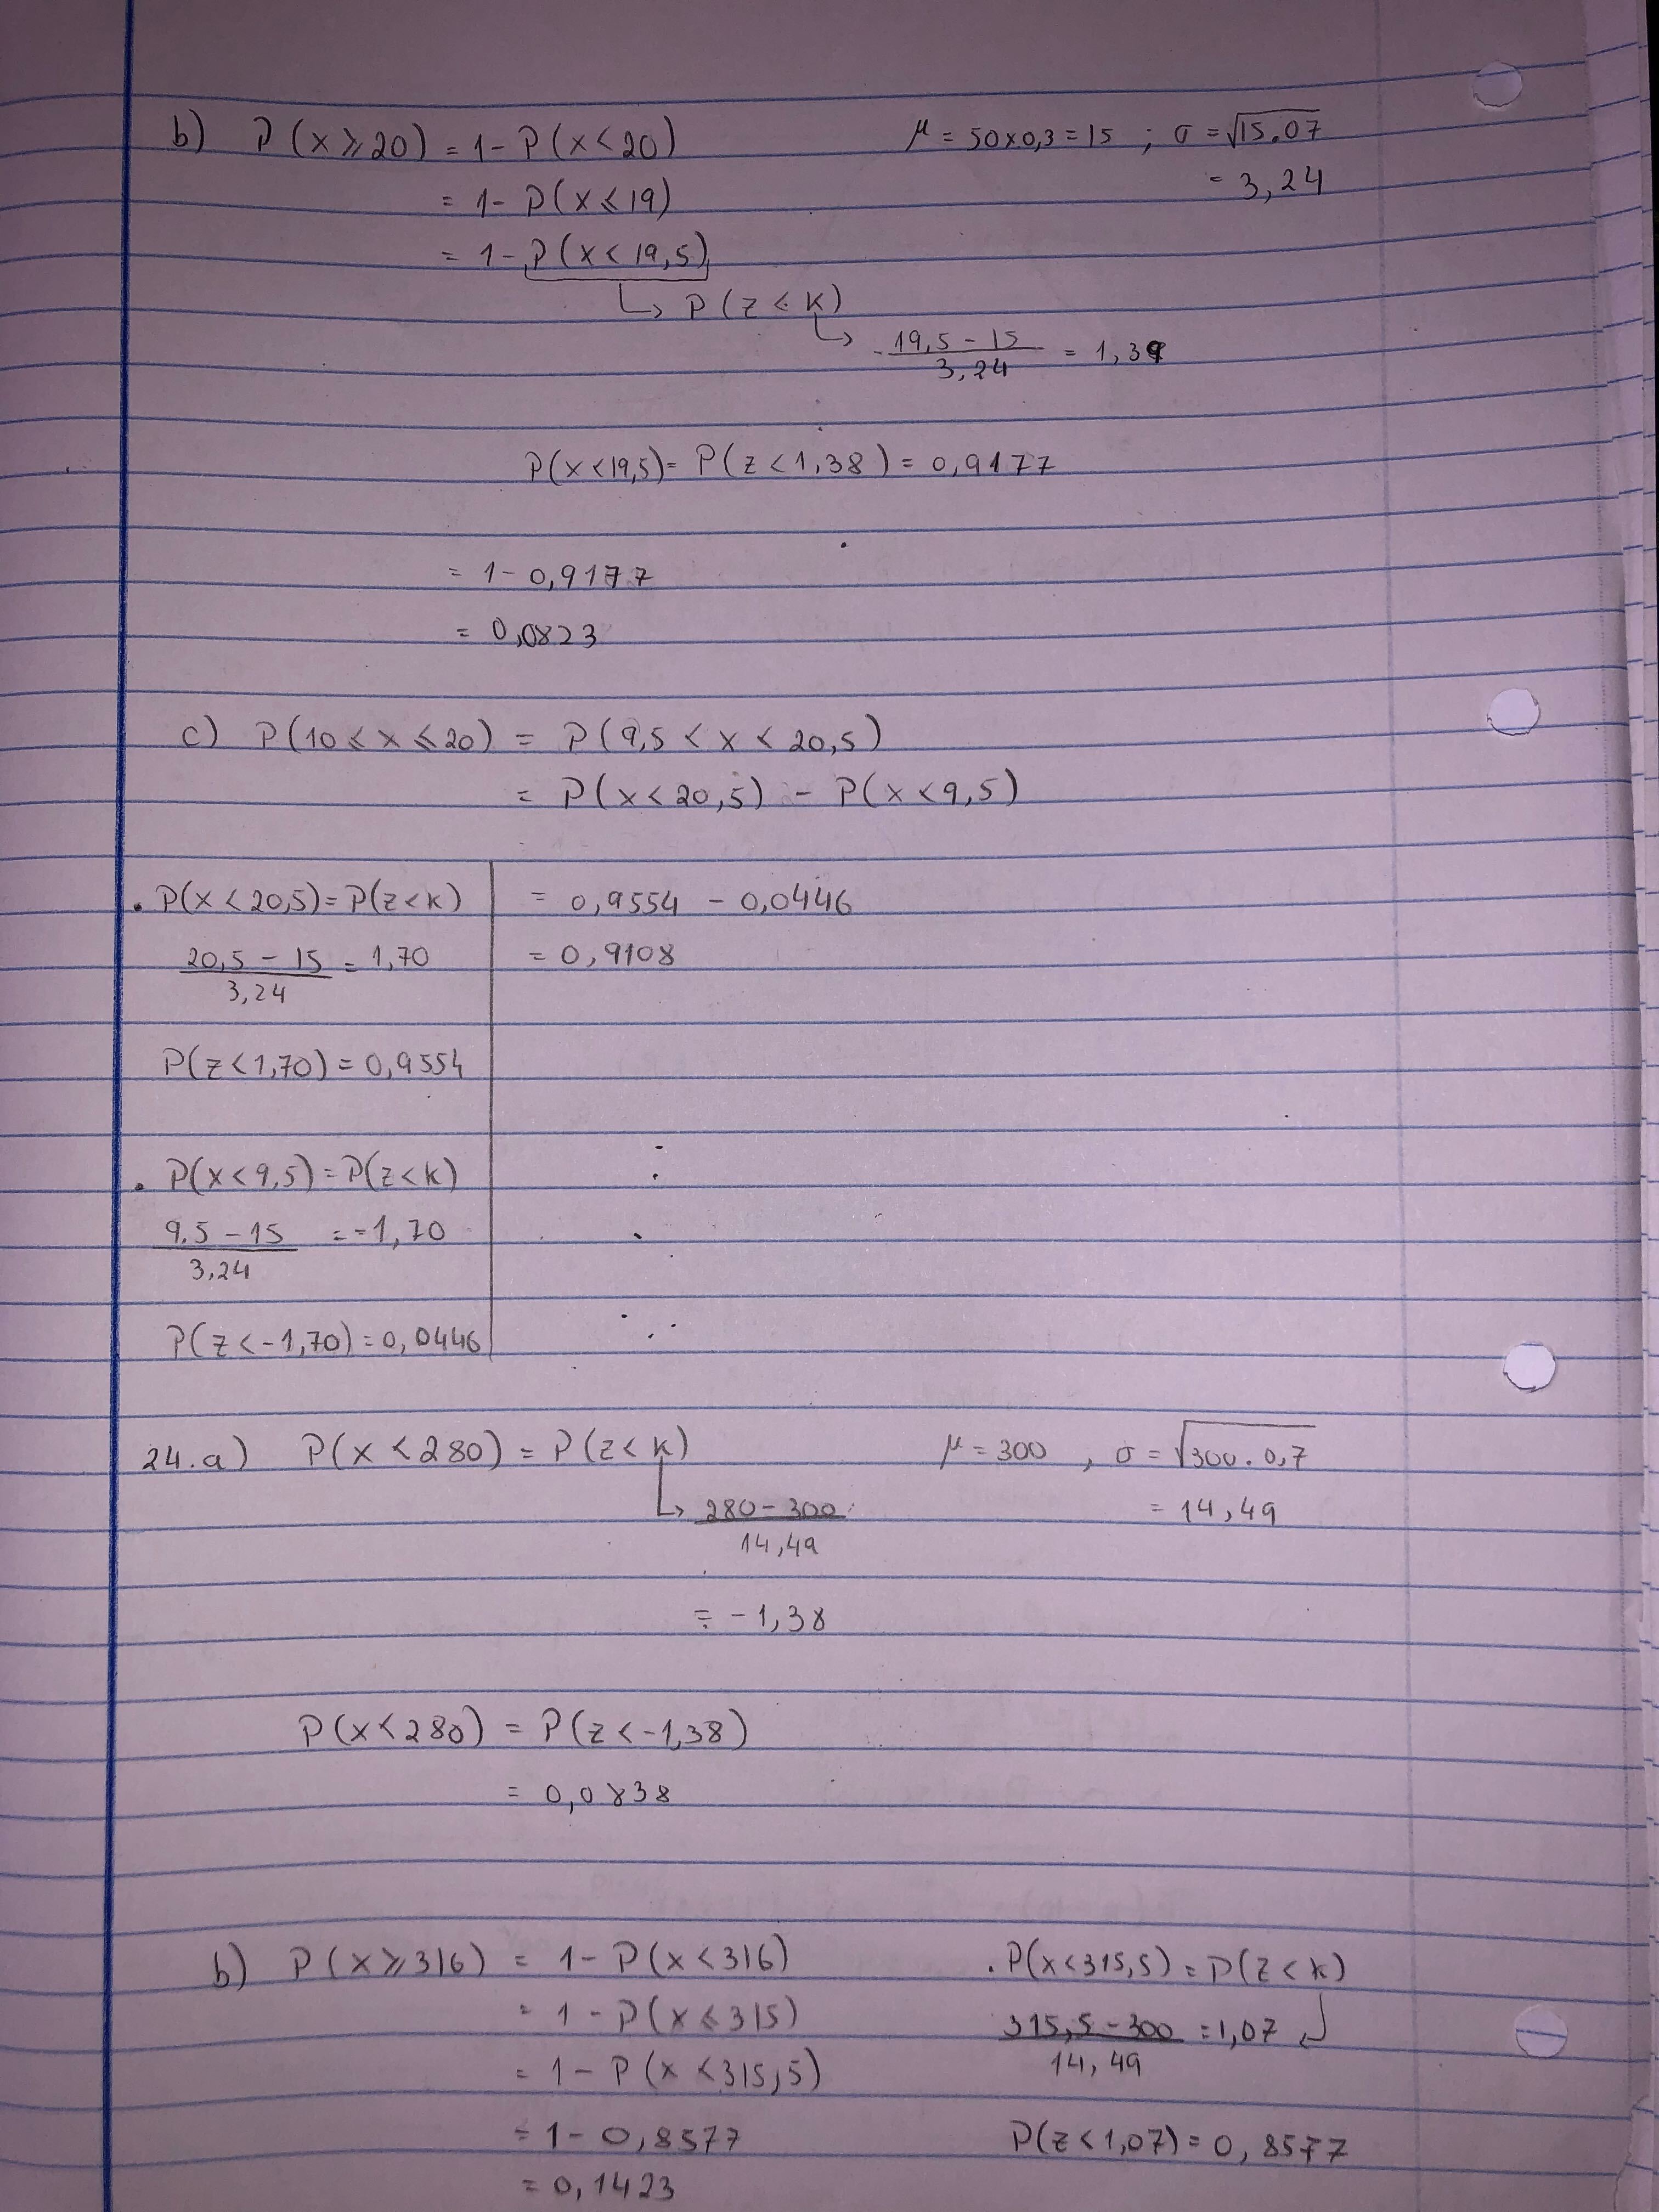 b) P(x ≥ 20) = 1 - P(x < 20)
μ = 50 x 0,3 = 15 ; σ = √15.07
= 3,24
= 1 - P(x ≤ 19)
= 1 - P(x < 19,5)
↳ P(z < k)
↳ 19,5 - 15 / 3,24 = 1,39
P(x < 19,5) = P(z < 1,38) = 0,9177
= 1 - 0,9177
= 0,0823
c) P(10 ≤ x ≤ 20) = P(9,5 < x < 20,5)
= P(x < 20,5) - P(x < 9,5)
. P(x < 20,5) = P(z < k)
20,5 - 15 / 3,24 = 1,70
P(z < 1,70) = 0,9554
. P(x < 9,5) = P(z < k)
9.5 - 15 / 3,24 = -1,70
P(z < -1,70) = 0,0446
= 0,9554 - 0,0446
= 0,9108
24. a) P(x < 280) = P(z < k)
μ = 300 , σ = √300. 0,7
= 14,49
↳ 280 - 300 / 14,49
= -1,38
P(x < 280) = P(z < -1,38)
= 0,0838
b) P(x ≥ 316) = 1 - P(x < 316)
= 1 - P(x ≤ 315)
= 1 - P(x < 315,5)
= 1 - 0,8577
= 0,1423
. P(x < 315,5) = P(z < k)
315,5 - 300 / 14,49 = 1,07 ↲
P(z < 1,07) = 0,8577